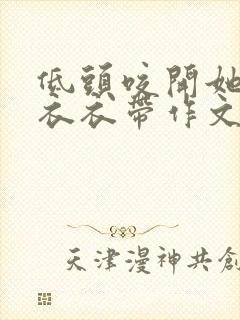 低頭咬開她
衣衣帶作文
天津漫神共創